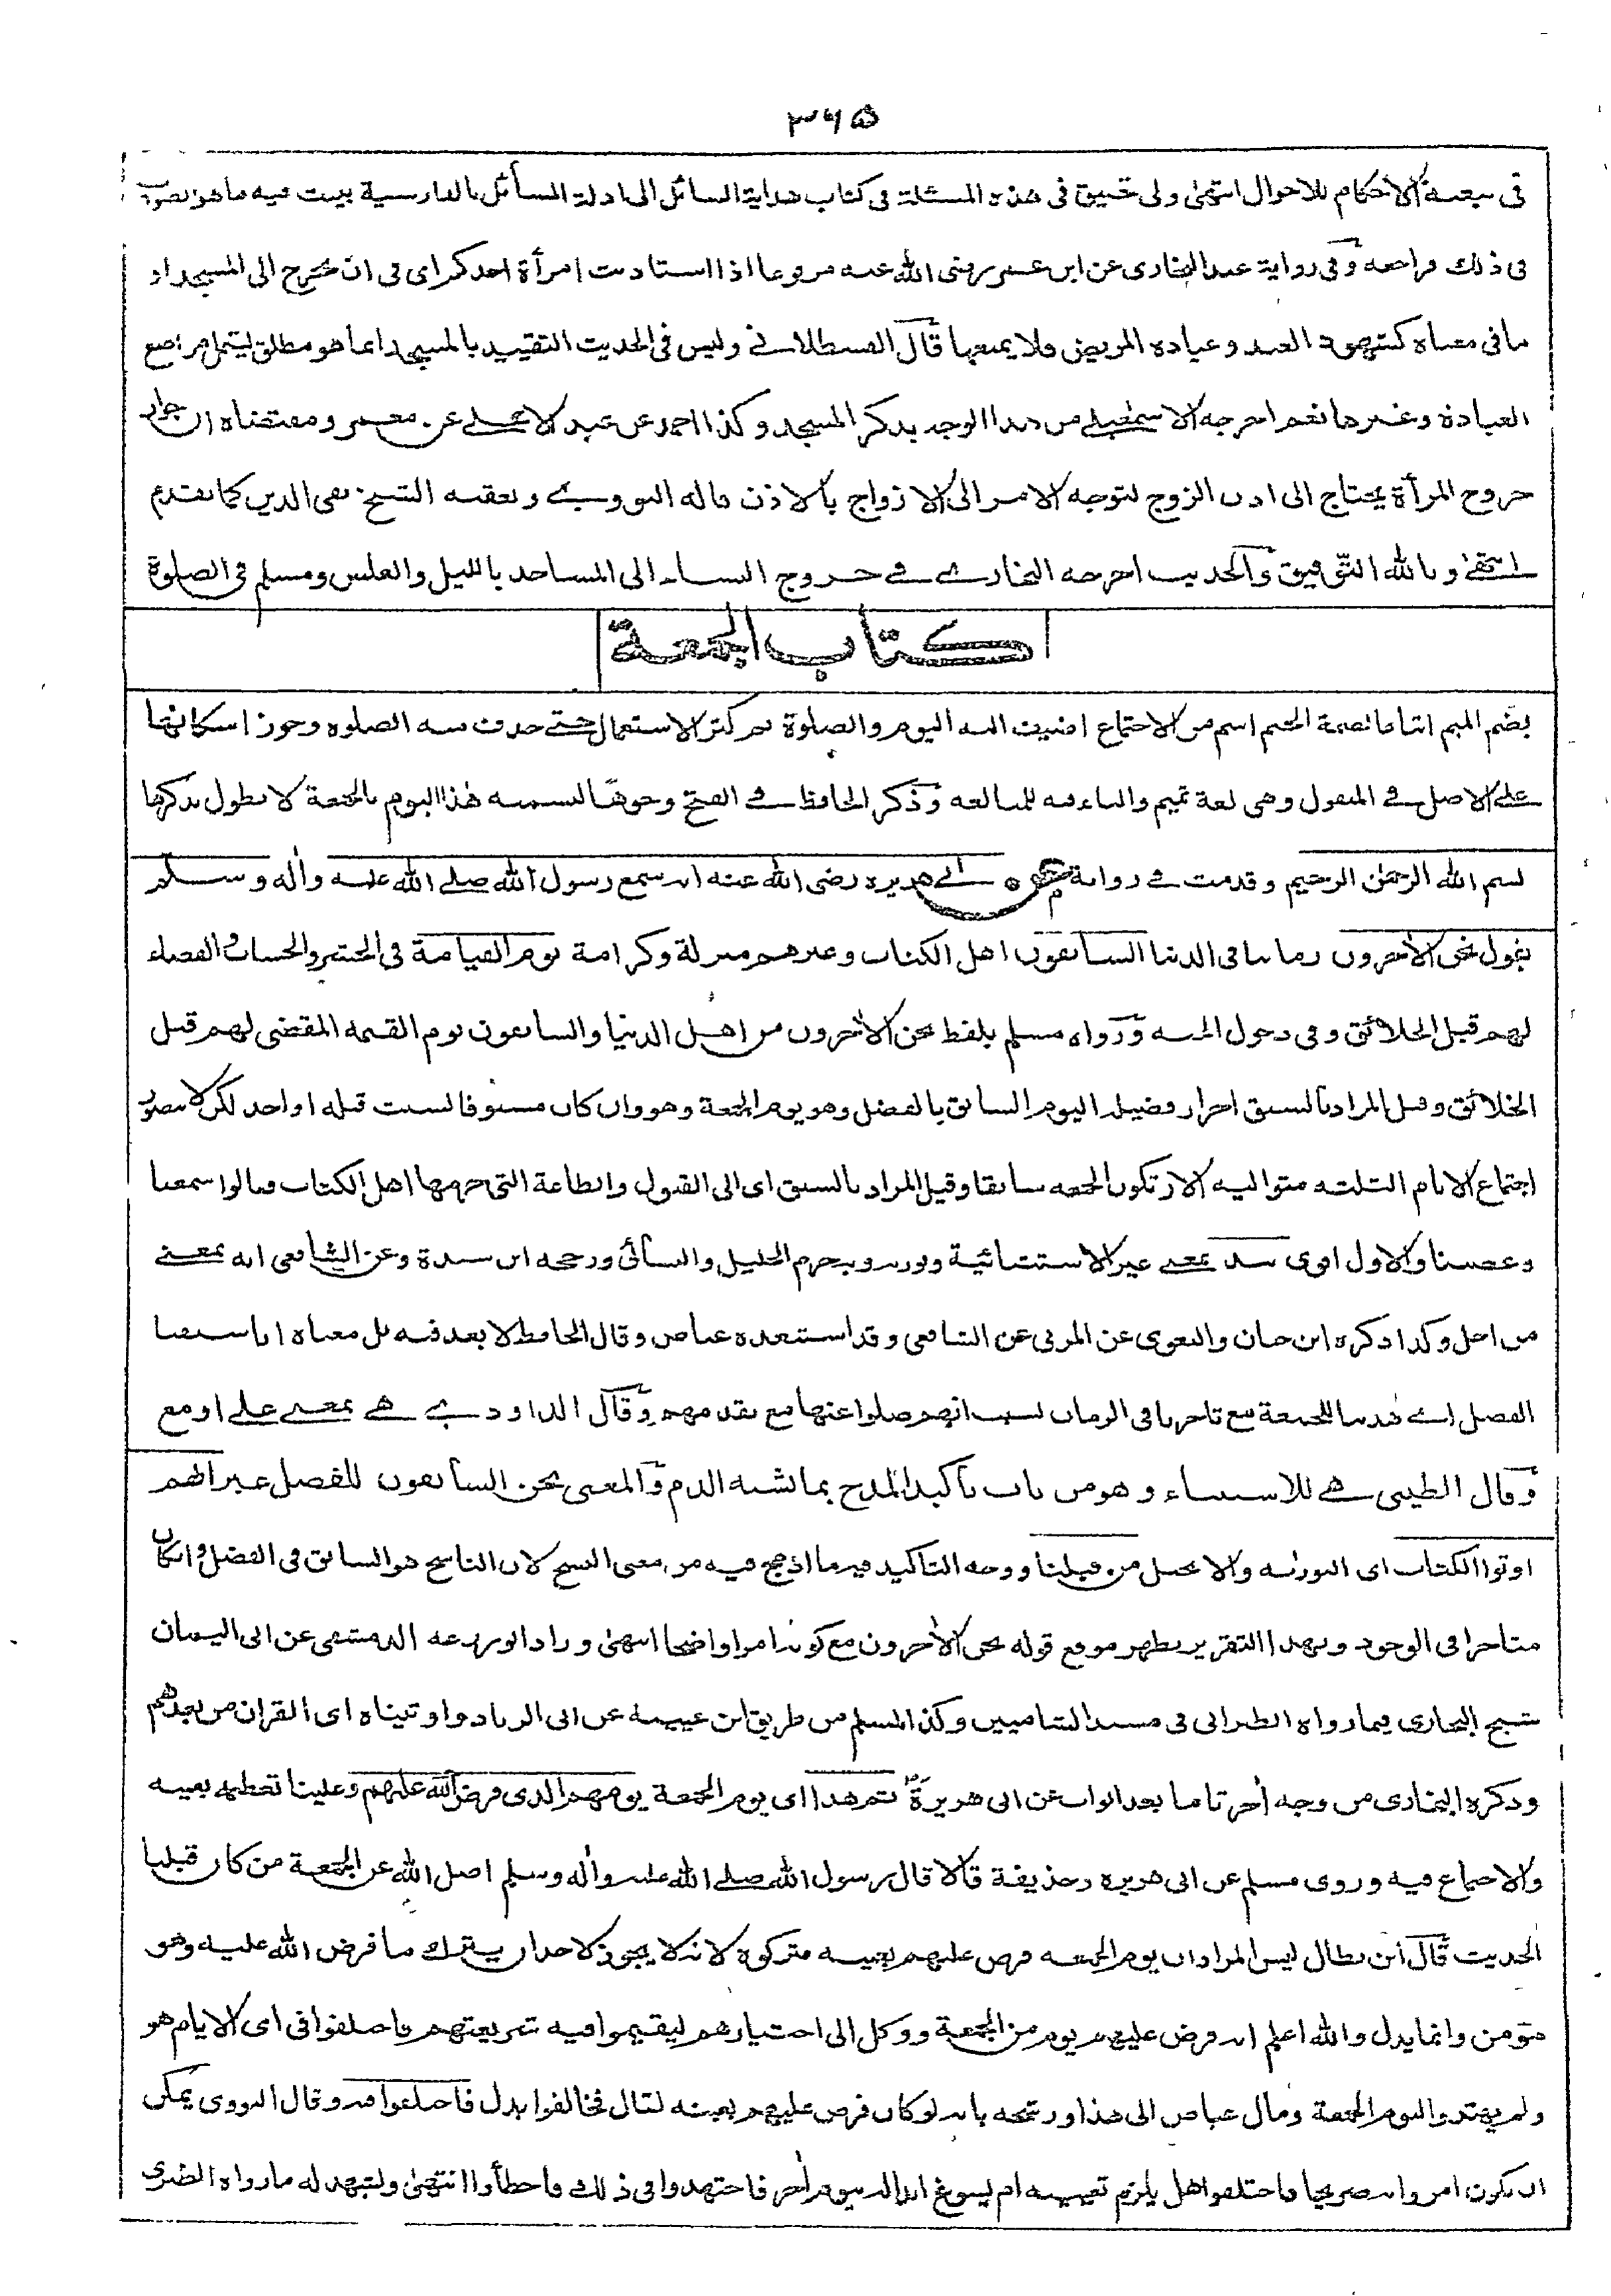 ٣٦٥
فى تبعية الاحكام للاحوال انتهى ولى تحقيق فى هذه المسئلة فى كتاب هداية السائل الى ادلة المسائل بالفارسية بينت فيه ما هو الصواب
فى ذلك فراجعه وفى رواية عند البخارى عن ابن عمر رضى الله عنه مرفوعا اذا استاذنت امرأة احدكم اى فى ان تخرج الى المسجد او
ما فى معناه كشهود العيد وعيادة المريض فلا يمنعها قال القسطلانے وليس فى الحديث التقييد بالمسجد انما هو مطلق ليشمل مواضع
العبادة وغيرها نعم اخرجه الاسمٰعيلے من هذا الوجه بذكر المسجد وكذا احمد عن عبد الاعلے عن معمر ومقتضاه ان جواز
خروج المرأة يحتاج الى اذن الزوج لتوجه الامر الى الازواج بالاذن قاله النووے وتعقبه الشيخ تقى الدين كما تقدم
انتهى وبالله التوفيق والحديث اخرجه البخارے فے خروج النساء الى المساجد بالليل والغلس ومسلم فى الصلوة
كتاب الجمعة
بضم الميم اتباعا لضمة الجيم اسم من الاجتماع اضيف اليه اليوم والصلوة ثم كثر الاستعمال حتے حذف منه الصلوة وجوز اسكانها
علے الاصل فے المفعول وهى لغة تميم والهاء فيه للمبالغه وذكر الحافظ فے الفتح وجوها لتسميه هذا اليوم بالجمعة لا نطول بذكرها
بسم الله الرحمٰن الرحيم وقدمت فے رواية عن ابے هريره رضى الله عنه انه سمع رسول الله صلے الله عليه واٰله وسلم
يقول نحن الاٰخرون زمانا فى الدنيا السابقون اهل الكتاب وغيرهم منزلة وكرامة يوم القيامة فى الحشر والحساب والقضاء
لهم قبل الخلائق وفى دخول الجنه ورواه مسلم بلفظ نحن الاٰخرون من اهل الدنيا والسابقون يوم القيمه المقضى لهم قبل
الخلائق وقيل المراد بالسبق احراز فضيلة اليوم السابق بالفضل وهو يوم الجمعة وهو وان كان مسبوقا بسبت قبله او احد لكن لا يتصور
اجتماع الايام الثلثه متواليه الا وتكون الجمعه سابقا وقيل المراد بالسبق اى الى القبول والطاعة التى حرمها اهل الكتاب فقالوا سمعنا
وعصينا والاول اقوى بيد بمعنے غير الاستثنائية وبه جزم الخليل والكسائى ورجحه ابن سيدة وعن الشافعى انه بمعنے
من اجل وكذا ذكره ابن حبان والبغوى عن المزنى عن الشافعى وقد استبعده عياض وقال الحافظ لا بعد فيه بل معناه انا سبقنا
الفضل اے هدينا للجمعة مع تاخرنا فى الزمان بسبب انهم ضلوا عنها مع تقدمهم وقال الداودے هے بمعنے علے او مع
وقال الطيبى هے للاستثناء وهو من باب تأكيد المدح بما يشبه الذم والمعنى نحن السابقون للفضل غير انهم
اوتوا الكتاب اى التورٰته والانجيل من قبلنا ووجه التاكيد فيه ما ادمج فيه من معنى النسخ لان الناسخ هو السابق فى الفضل وان كان
متاخرا فى الوجود وبهذا التقرير يظهر موقع قوله نحن الاٰخرون مع كونه امرا واضحا انتهى وزاد ابو زرعه الدمشقى عن ابى اليمان
شيخ البخارى فيما رواه الطبرانى فى مسند الشاميين وكذا لمسلم من طريق ابن عيينه عن ابى الزناد واوتيناه اى القران من بعدهم
وذكره البخارى من وجه اٰخر تاما بعد ابواب عن ابى هريرة ثم هذا اى يوم الجمعة يومهم الذى فرض الله عليهم وعلينا تعظيمه بعينه
والاجتماع فيه وروى مسلم عن ابى هريره وحذيفة قالا قال رسول الله صلے الله عليه واٰله وسلم اضل الله عن الجمعة من كان قبلنا
الحديث قال ابن بطال ليس المراد ان يوم الجمعه فرض عليهم بعينه فتركوه لانه لا يجوز لاحد ان يترك ما فرض الله عليه وهو
مؤمن وانما يدل والله اعلم انه فرض عليهم يوم من الجمعة ووكل الى اختيارهم ليقيموا فيه شريعتهم فاختلفوا فى اى الايام هو
ولم يهتدوا ليوم الجمعة ومال عياض الى هذا ورشحه بانه لو كان فرض عليهم بعينه لقال فخالفوا بدل فاختلفوا فيه وقال النووى يمكن
ان يكون امروا به صريحا فاختلفوا هل يلزم تعيينه ام يسوغ ابداله بيوم اٰخر فاجتهدوا فى ذلك فاخطأوا انتهى ويشهد له ما رواه الطبرى